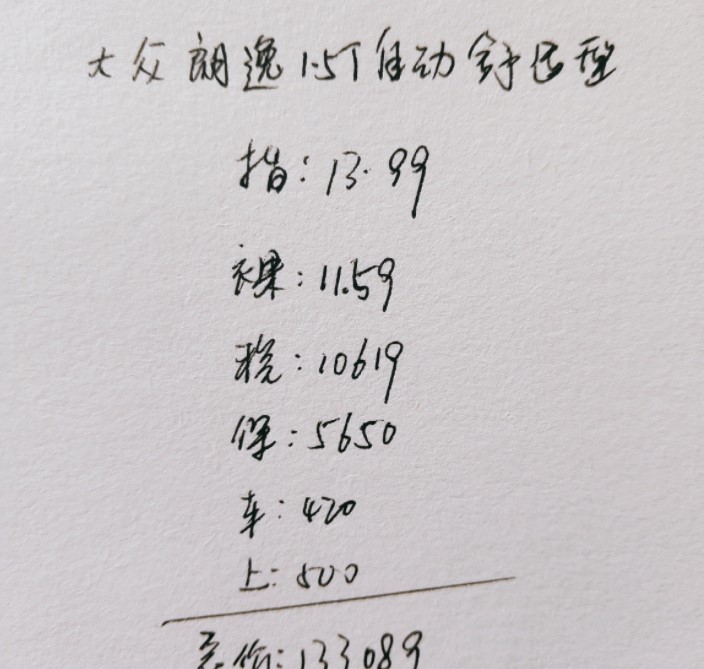 大众朗逸1.5T自动舒适型
指:13.99
裸:11.59
税:10619
保:5650
车:420
上:500
总价:133089